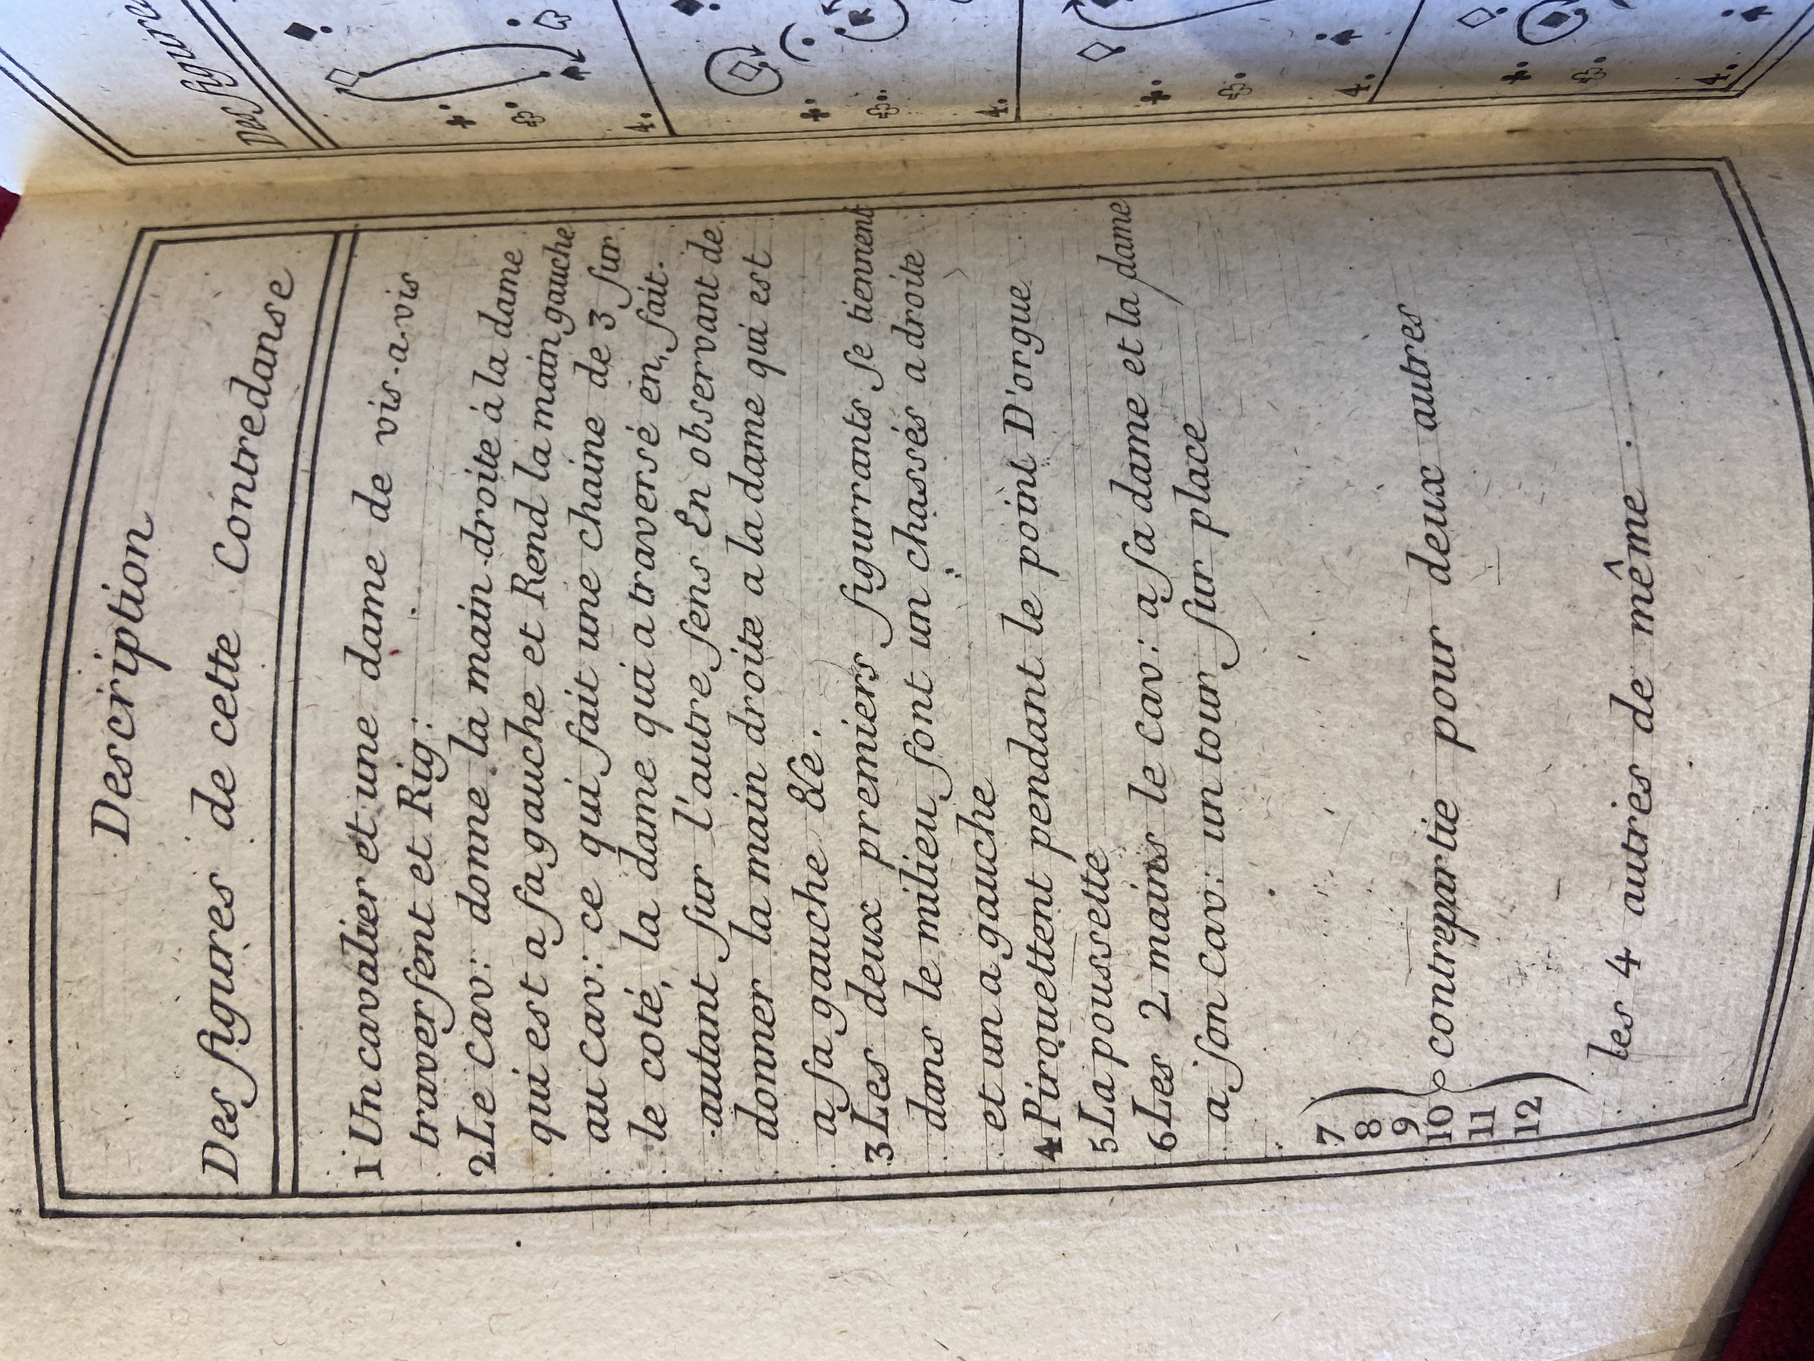 Description
Des figures de cette Contredanse
1 Un cavalier et une dame de vis-a-vis
traversent et Rig:
2 Le Cav: donne la main droite à la dame
qui est a sa gauche et Rend la main gauche
au Cav: ce qui fait une chaine de 3 sur
le coté, la dame qui a traversé en, fait.
autant sur l'autre sens En observant de
donner la main droite a la dame qui est
a sa gauche &c.
3 Les deux premiers figurrants se tiennent
dans le milieu font un chassés a droite
et un a gauche
4 Pirouettent pendant le point D'orgue
5 La poussette
6 Les 2 mains le cav: a sa dame et la dame
a son Cav: un tour sur place
7
8
9
10 contrepartie pour deux autres
11
12
les 4 autres de même.
Des figure
4.
4.
4.
4.